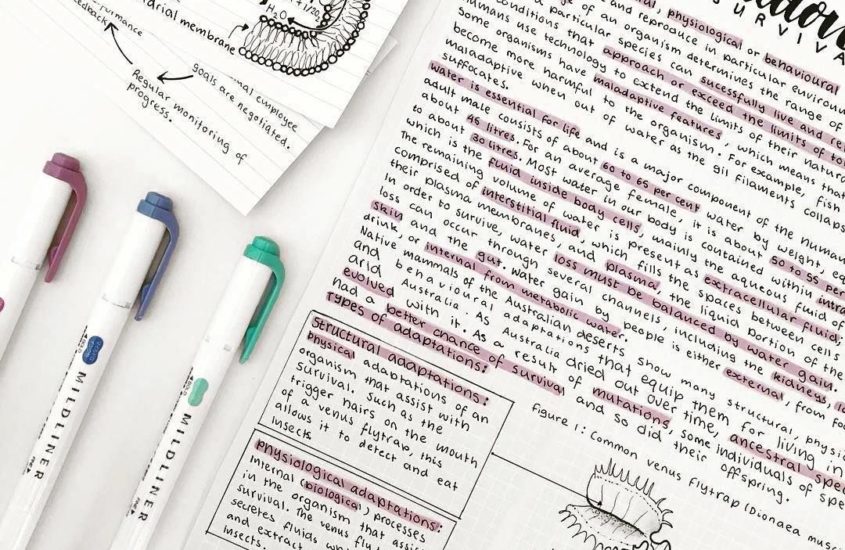 formance
feedback
drial membrane
H2O
Regular monitoring of
progress.
employee
goals are negotiated.
SURVIVA
physiological or behavioural
and reproduce in particular environ
of an organism determines the range of
conditions that a particular species can sucessfully live and re
humans use technology to approach or exceed the limits of tol
Some organisms have to extend the limits of their natura
become more harmful maladaptive features, which means that
maladaptive when out to the organism. For example, fish
suffocates. of water as the gil filaments collaps
water is essential for life and is a major component of the human
adult male consists of about 60 to 65 percent water by weight, eq
about 45 litres. For an average female, it is about 50 to 55 per
to about 30 litres. Most water in our body is contained within intra
which is the fluid inside body cells, mainly the aqueous fluid of
the remaining volume of water is present as extracellular fluid,
comprised of interstitial fluid, which fills the spaces between cells
their plasma membranes, and plasma, the liquid portion of the
In order to survive, water loss must be balanced by water gain.
loss can occur through several channels, including the kidneys, l
skin and the gut. Water gain by people is either external, from foo
drink, or internal from metabolic water.
Native mammals of the Australian deserts show many structural, physio
and behavioural adaptations that equip them for living in
arid Australia. As Australia dried out over time, ancestral spe
evolved with it. As a result of mutations, some individuals of spe
had a better chance of survival and so did their offspring.
Types of adaptations:
Structural adaptations:
physical adaptations of an
organism that assist with
survival. Such as the
trigger hairs on the mouth
of a venus flytrap, this
allows it to detect and eat
insects
physiological adaptations:
Internal (biological) processes
in the organism that assi
survival. The venus fly
secretes fluids wh
and extract
insects.
Figure 1: Common venus flytrap (Dionaea musc
MILDLINER
MILDLINER